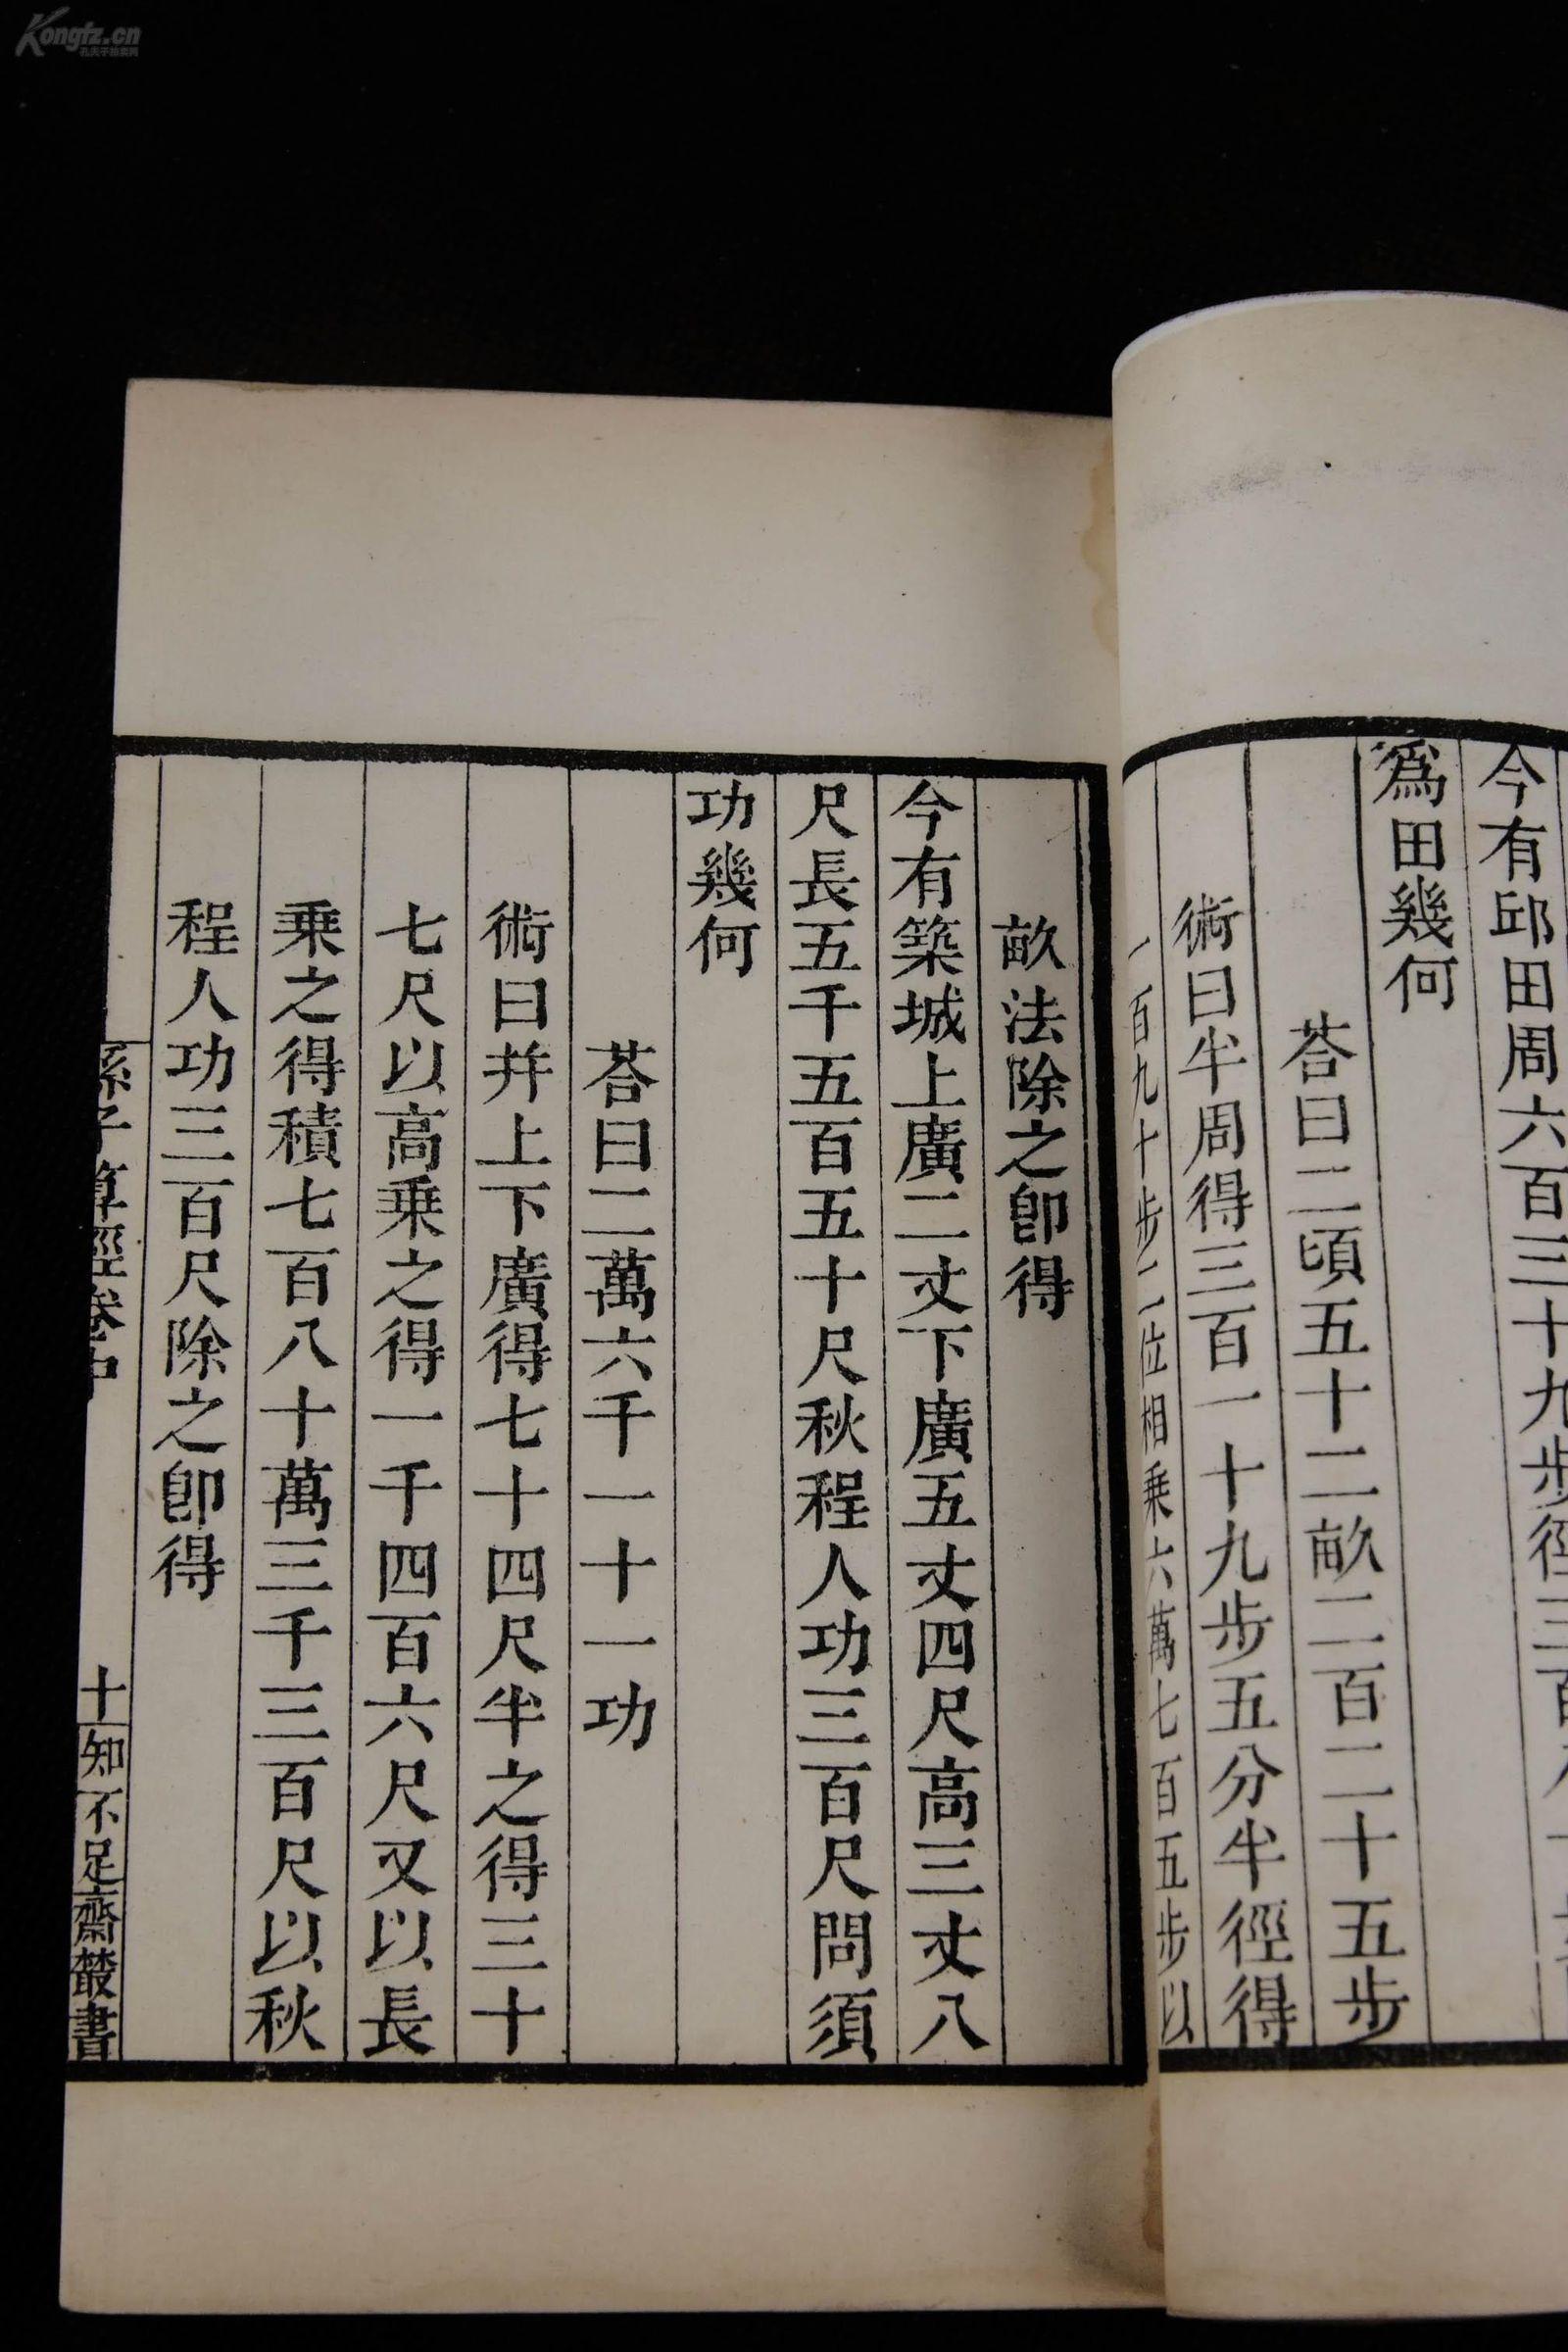 Kongfz.cn
今有邱田周六百三十九步徑三百八十步
爲田幾何
荅曰二頃五十二畝二百二十五步
術曰半周得三百一十九步五分半徑得
一百九十步二位相乗六萬七百五步以
畝法除之卽得
今有築城上廣二丈下廣五丈四尺高三丈八
尺長五千五百五十尺秋程人功三百尺問須
功幾何
荅曰二萬六千一十一功
術曰并上下廣得七十四尺半之得三十
七尺以高乗之得一千四百六尺又以長
乗之得積七百八十萬三千三百尺以秋
程人功三百尺除之卽得
孫子算經卷中
十
知不足齋叢書